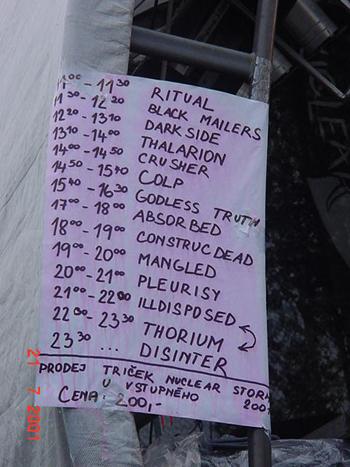 11⁰⁰ - 11³⁰ RITUAL
11³⁰ - 12²⁰ BLACK MAILERS
12²⁰ - 13¹⁰ DARK SIDE
13¹⁰ - 14⁰⁰ THALARION
14⁰⁰ - 14⁵⁰ CRUSHER
14⁵⁰ - 15⁴⁰ COLP
15⁴⁰ - 16³⁰ GODLESS TRUTH
17⁰⁰ - 18⁰⁰ ABSORBED
18⁰⁰ - 19⁰⁰ CONSTRUCDEAD
19⁰⁰ - 20⁰⁰ MANGLED
20⁰⁰ - 21⁰⁰ PLEURISY
21⁰⁰ - 22⁰⁰ ILLDISPOSED
22⁰⁰ - 23³⁰ THORIUM
23³⁰ ... DISINTER
PRODEJ TRIČEK NUCLEAR STORM 2001
U VSTUPNÉHO
CENA: 200,-
21 7 2001